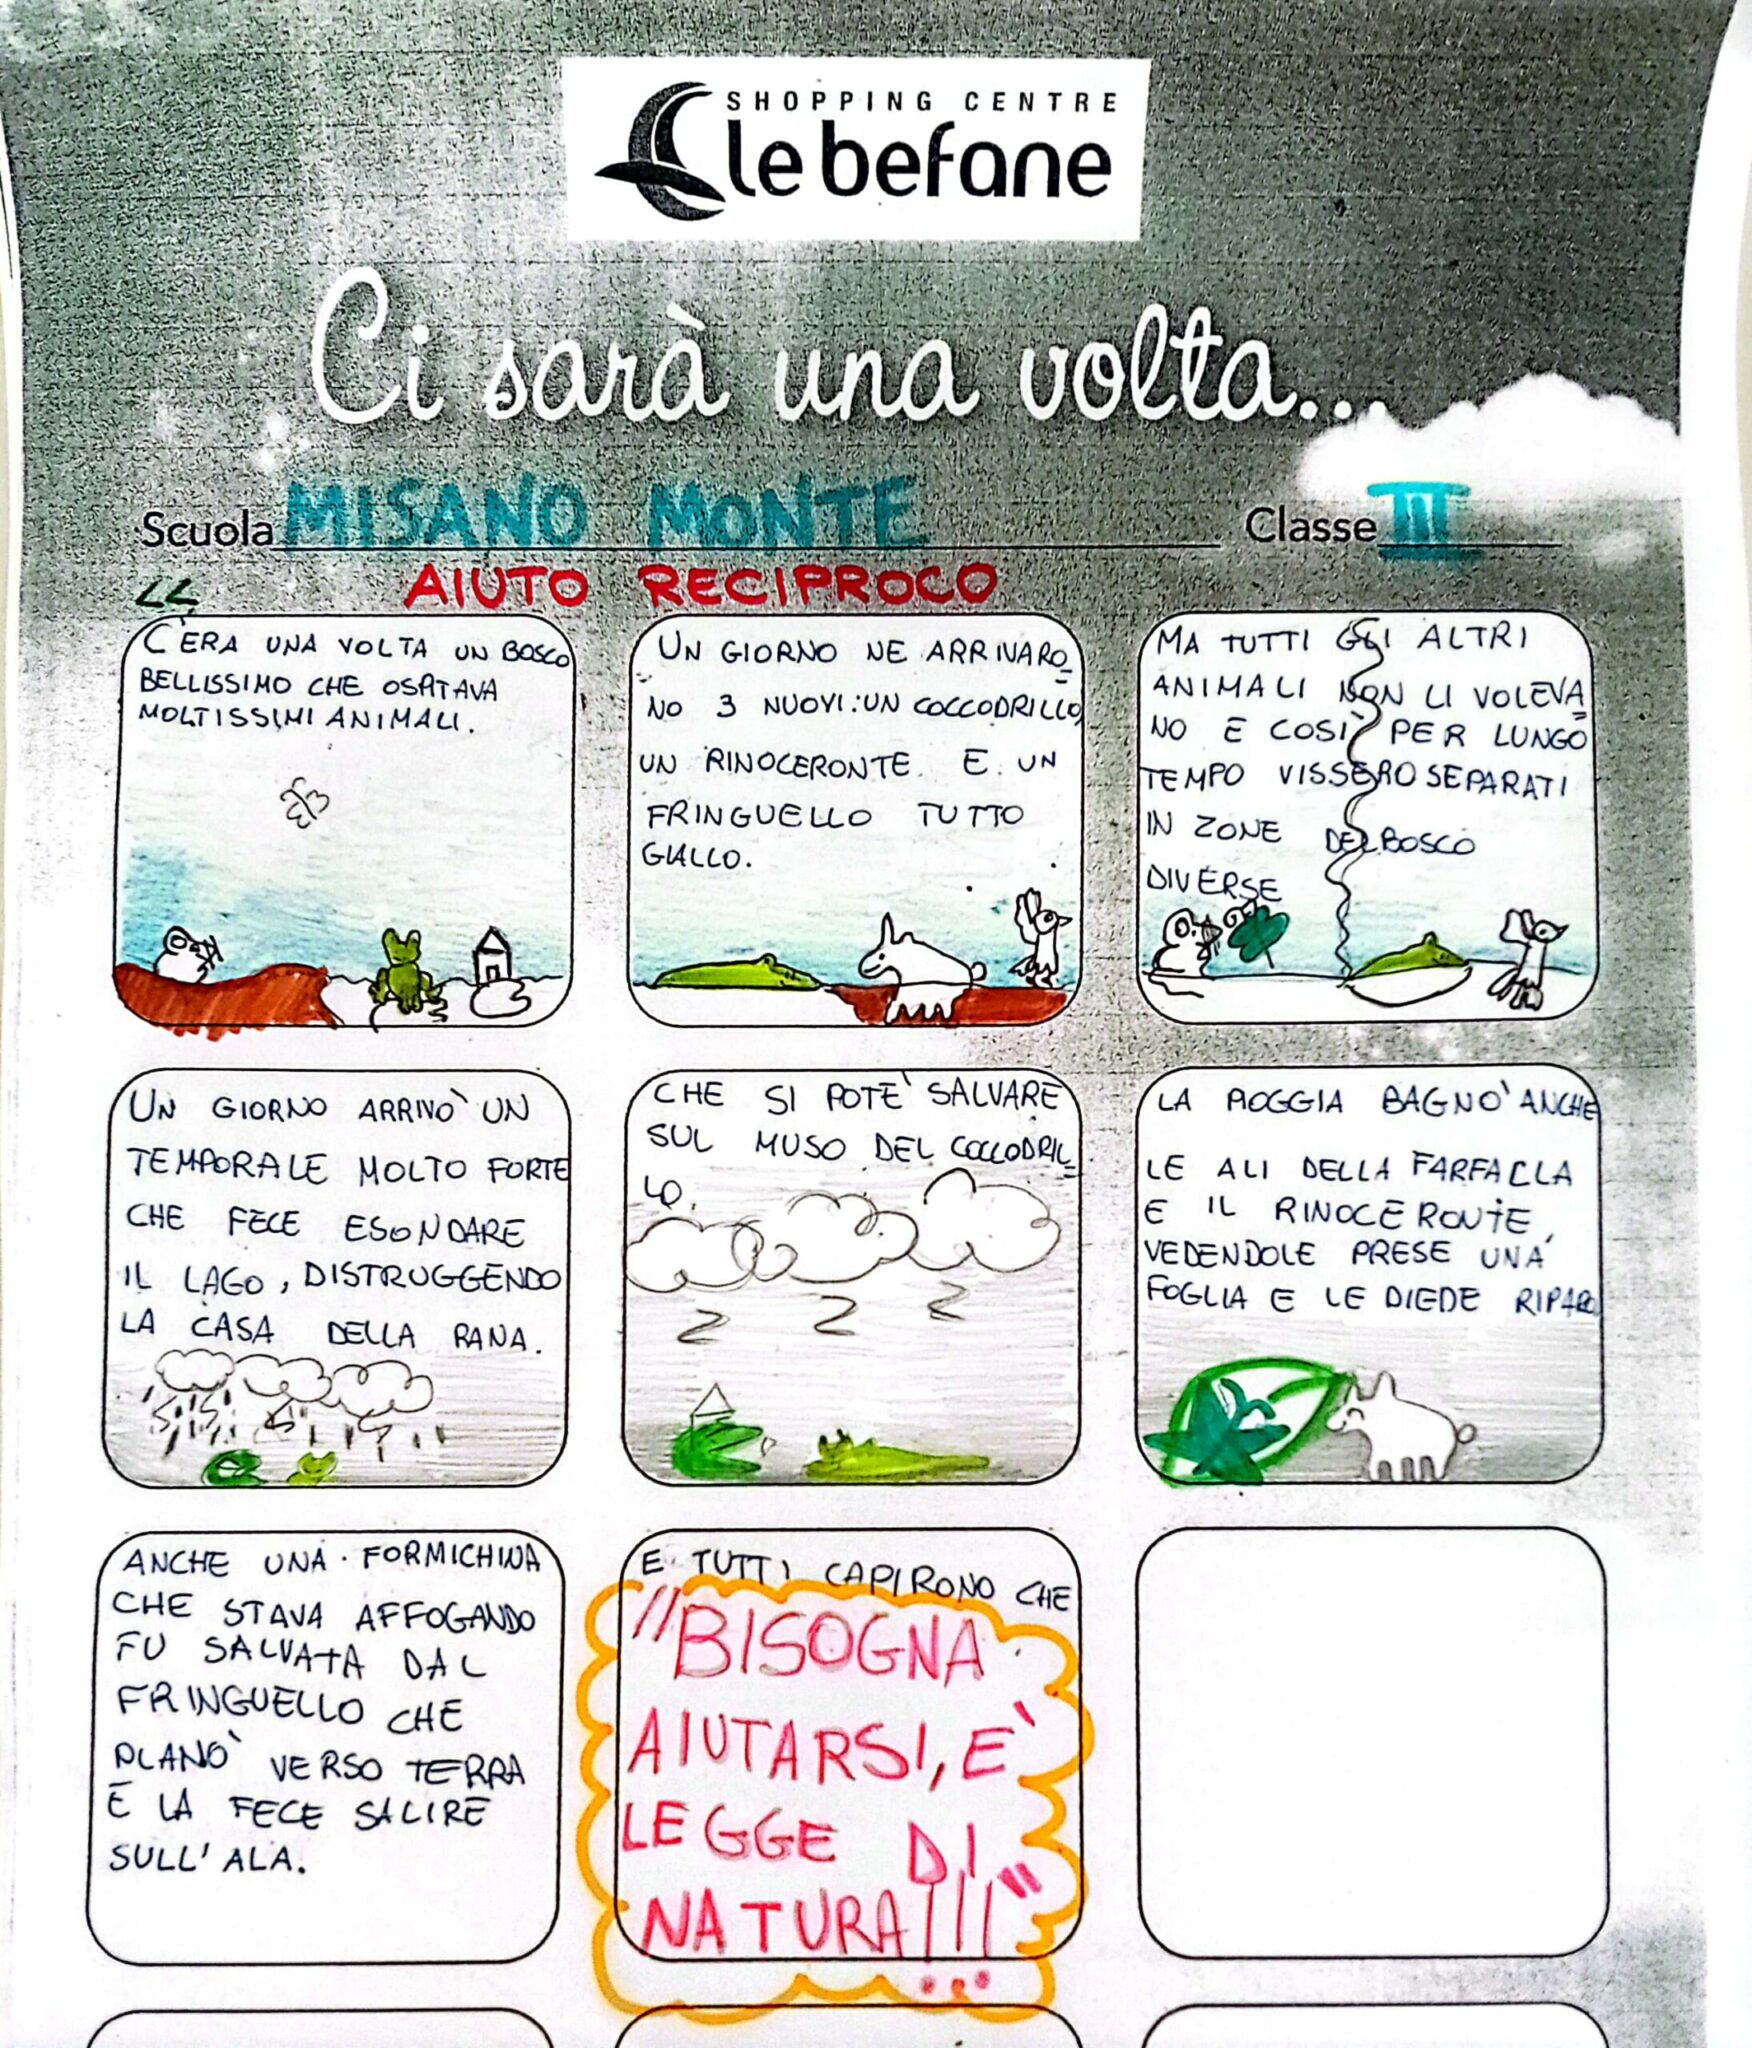 SHOPPING CENTRE
le befane
Ci sarà una volta...
Scuola MISANO MONTE Classe III
AIUTO RECIPROCO
C'ERA UNA VOLTA UN BOSCO
BELLISSIMO CHE OSPITAVA
MOLTISSIMI ANIMALI.
UN GIORNO NE ARRIVARO
NO 3 NUOVI: UN COCCODRILLO,
UN RINOCERONTE E UN
FRINGUELLO TUTTO
GIALLO.
MA TUTTI GLI ALTRI
ANIMALI NON LI VOLEVA
NO E COSÌ PER LUNGO
TEMPO VISSERO SEPARATI
IN ZONE DEL BOSCO
DIVERSE
UN GIORNO ARRIVÒ UN
TEMPORALE MOLTO FORTE
CHE FECE ESONDARE
IL LAGO, DISTRUGGENDO
LA CASA DELLA RANA.
CHE SI POTE' SALVARE
SUL MUSO DEL COCCODRIL
LO.
LA PIOGGIA BAGNO' ANCHE
LE ALI DELLA FARFALLA
E IL RINOCERONTE,
VEDENDOLE PRESE UNA
FOGLIA E LE DIEDE RIPARO
ANCHE UNA FORMICHINA
CHE STAVA AFFOGANDO
FU SALVATA DAL
FRINGUELLO CHE
PLANO' VERSO TERRA
E LA FECE SALIRE
SULL'ALA.
E TUTTI CAPIRONO CHE
"BISOGNA
AIUTARSI, È
LEGGE DI
NATURA!!!"